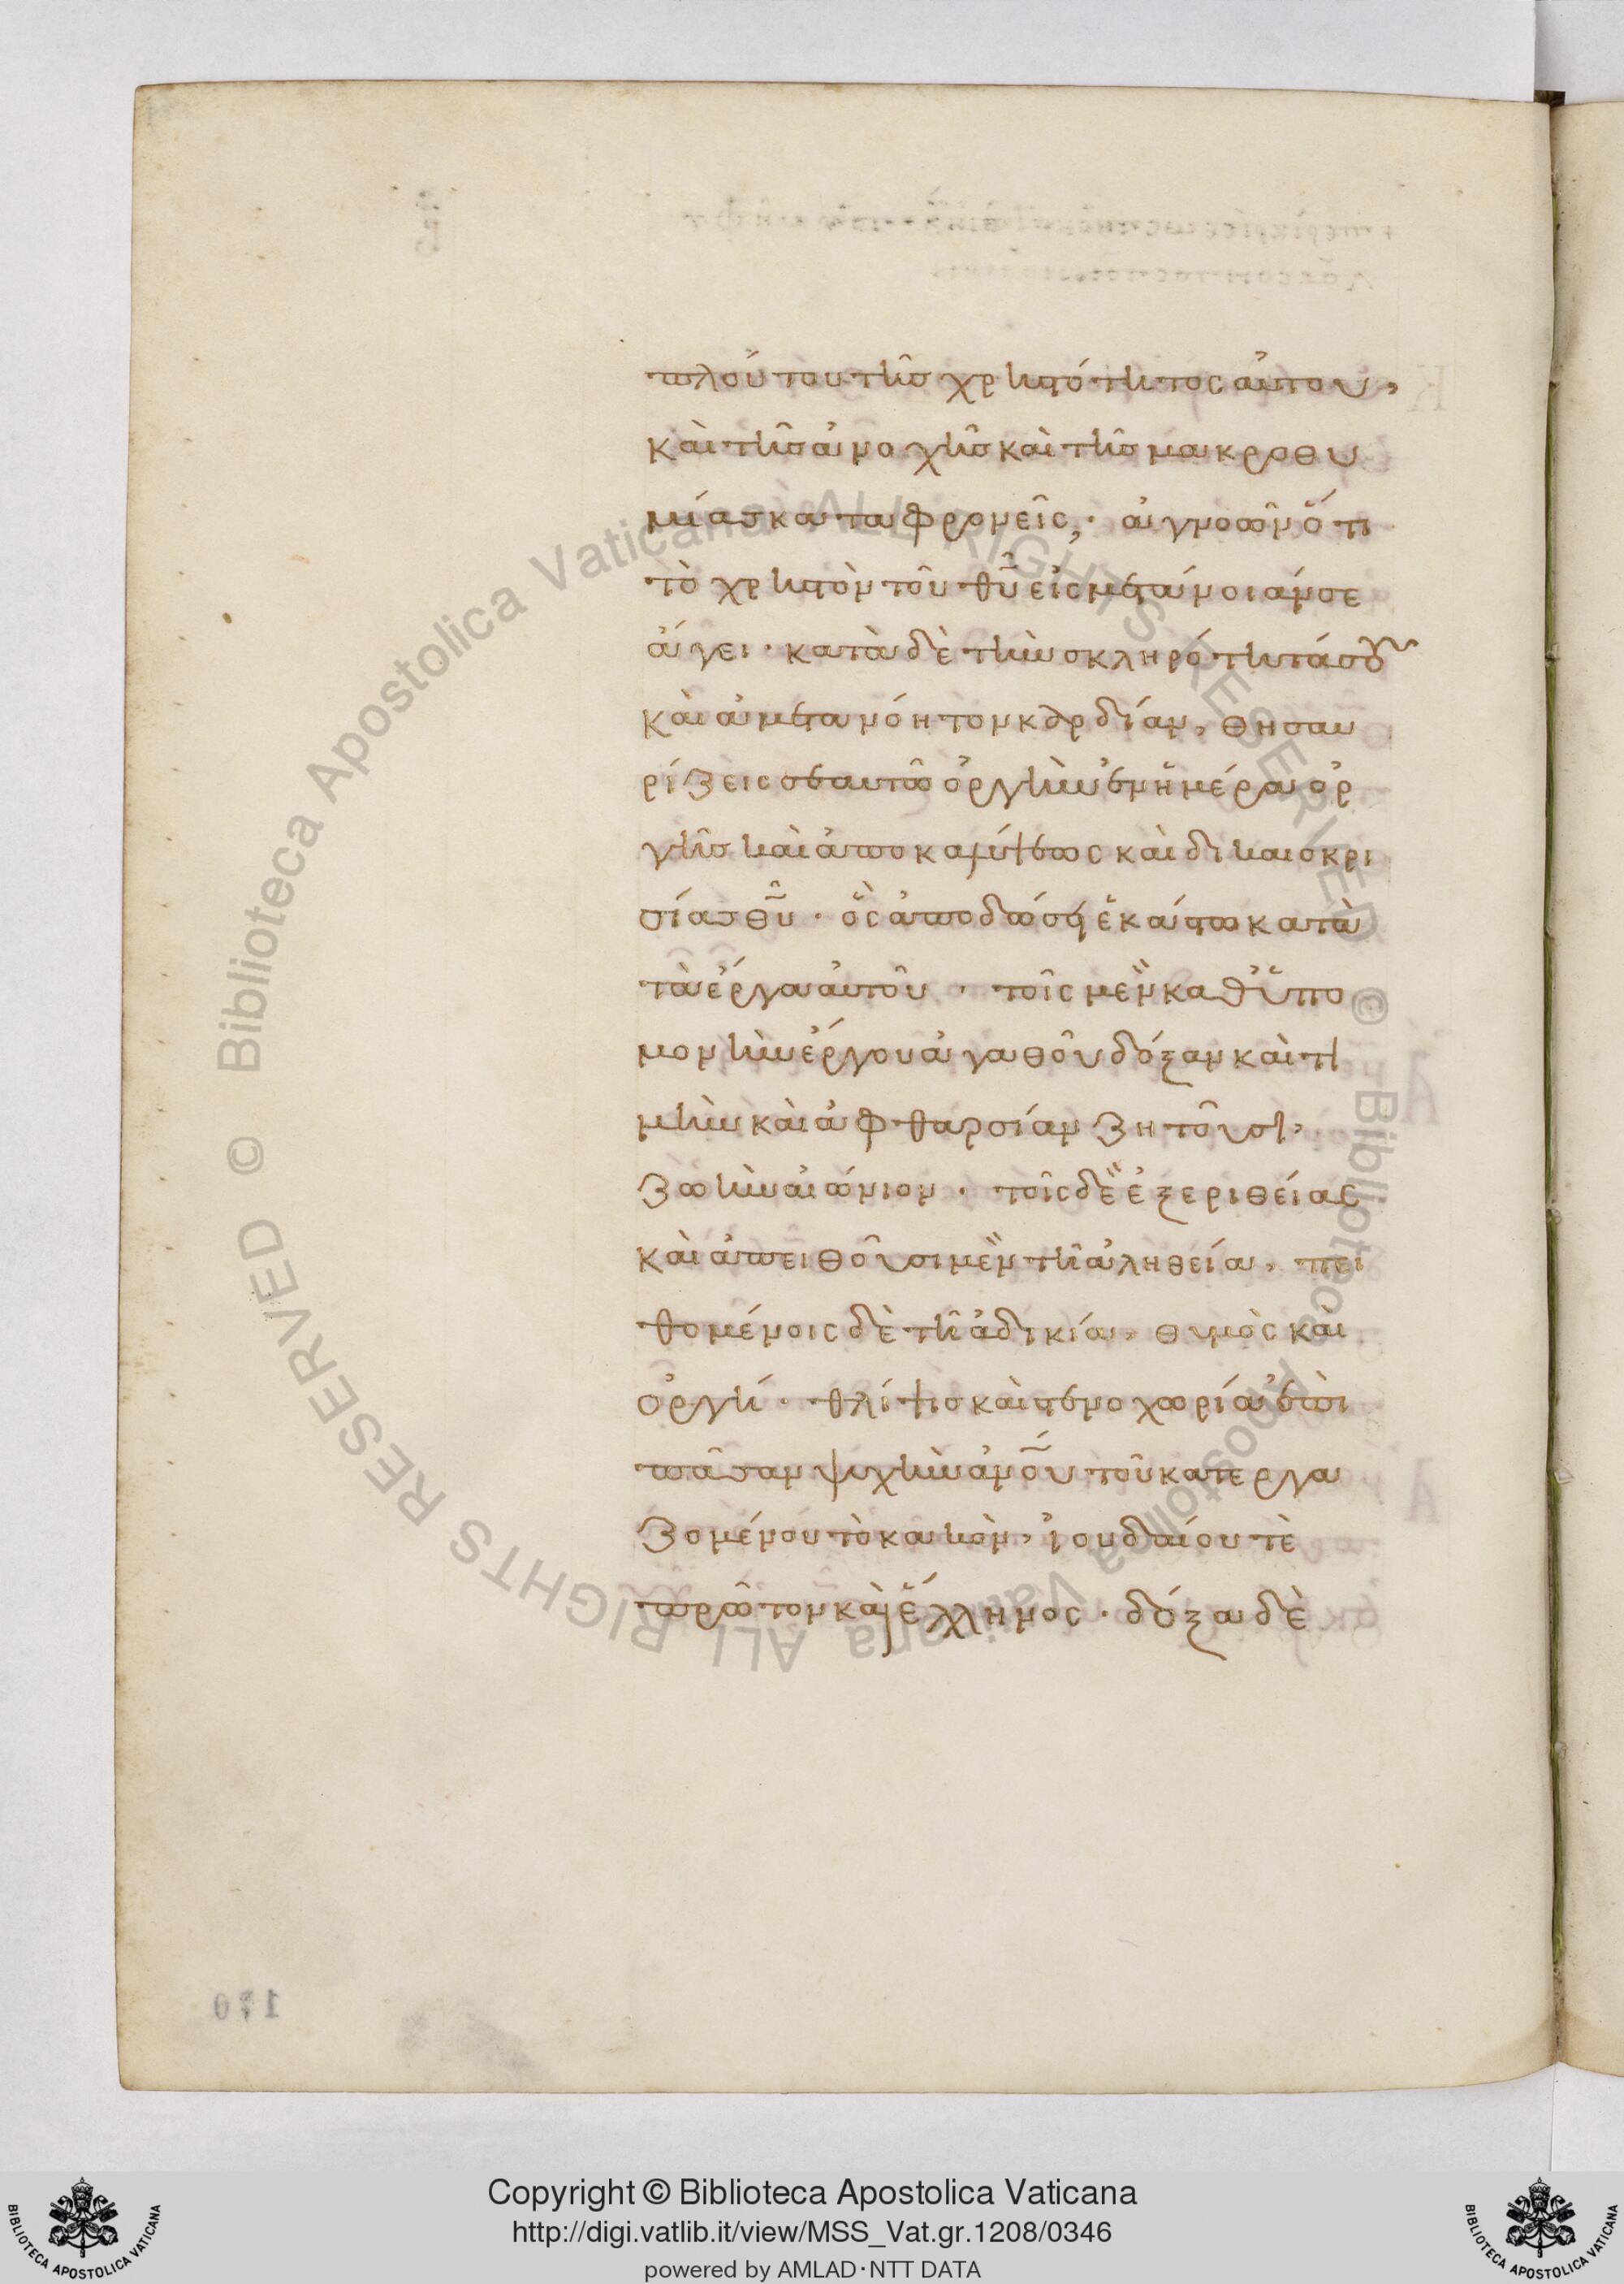 πλούτου τῆς χρηστότητος αὐτου,
καὶ τῆς ἀνοχῆς καὶ τῆς μακροθυ
μίας καταφρονεῖς; · ἀγνοῶν ὅτι
τὸ χρηστὸν τοῦ θῦ εἰς μετάνοιάν σε
ἄγει · κατὰ δὲ τὴν σκληρότητά σου
καὶ ἀμετανόητον καρδίαν, θησαυ
ρίζεις σεαυτῶ ὀργὴν ἐν ἡμέρα ὀρ
γῆς καὶ ἀποκαλύψεως καὶ δικαιοκρι
σίας θῦ · ὃς ἀποδώσει ἑκάστω κατὰ
τὰ ἔργα αὐτοῦ · τοῖς μὲν καθ' ὑπο
μονὴν ἔργου ἀγαθοῦ δόξαν καὶ τι
μὴν καὶ ἀφθαρσίαν ζητοῦσι,
ζωὴν αἰώνιον · τοῖς δὲ ἐξ ἐριθείας
καὶ ἀπειθοῦσι μὲν τῆ ἀληθεία, πει
θομένοις δὲ τῆ ἀδικία, θυμὸς καὶ
ὀργή · θλίψις καὶ στενοχωρία ἐπὶ
πᾶσαν ψυχὴν ἀνου τοῦ κατεργα
ζομένου τὸ κακὸν, ἰουδαίου τὲ
πρῶτον καὶ ἕλληνος · δόξα δὲ
© Biblioteca Apostolica Vaticana ALL RIGHTS RESERVED
© Biblioteca Apostolica Vaticana ALL RIGHTS RESERVED
170
Copyright © Biblioteca Apostolica Vaticana
http://digi.vatlib.it/view/MSS_Vat.gr.1208/0346
powered by AMLAD·NTT DATA
BIBLIOTECA APOSTOLICA VATICANA
BIBLIOTECA APOSTOLICA VATICANA